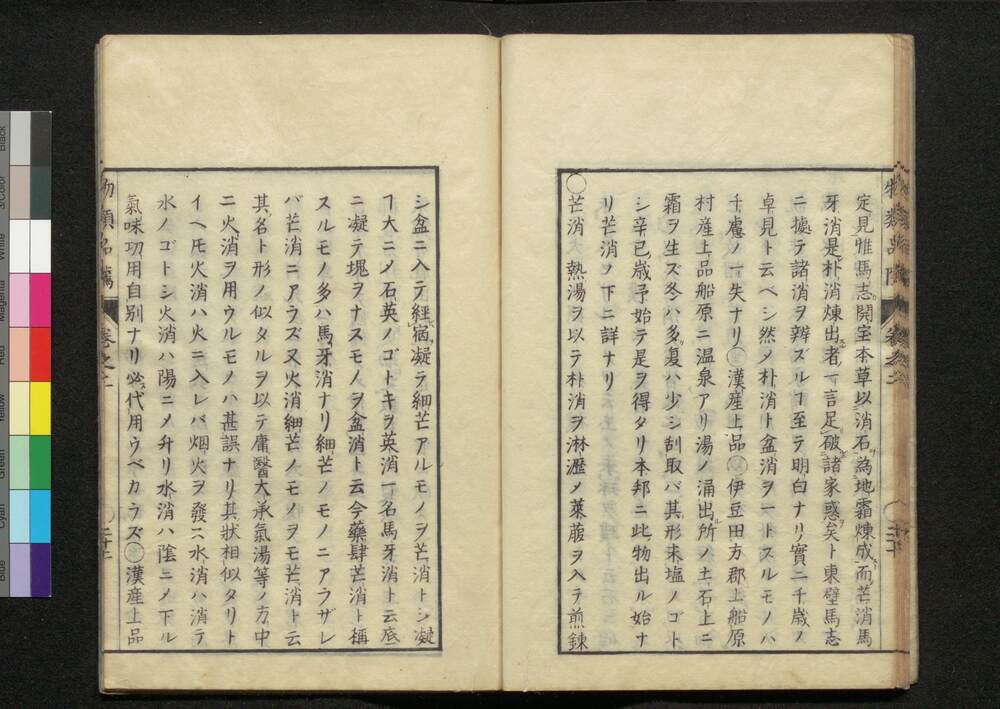 定見惟馬志開宝本草以消石為地霜煉成而芒消馬
牙消是朴消煉出者一言足破諸家惑矣ト東壁馬志
ニ據テ諸消ヲ辨ズルヿ至テ明白ナリ實ニ千歳ノ
卓見ト云ベシ然メ朴消ト盆消ヲ一トスルモノハ
千慮ノ一失ナリ〇漢産上品〇伊豆田方郡上船原
村産上品船原ニ温泉アリ湯ノ涌出所ノ土石上ニ
霜ヲ生ズ冬ハ多夏ハ少シ刮取バ其形末塩ノゴト
シ辛巳歳予始テ是ヲ得タリ本邦ニ此物出ル始ナ
リ芒消ノ下ニ詳ナリ
〇芒消 熱湯ヲ以テ朴消ヲ淋瀝メ萊菔ヲ入テ煎錬
シ盆ニ入テ經宿凝テ細芒アルモノヲ芒消トシ凝
ヿ大ニメ石英ノゴトキヲ英消一名馬牙消ト云底
ニ凝テ塊ヲナスモノヲ盆消ト云今藥肆芒消ト稱
スルモノ多ハ馬牙消ナリ細芒ノモノニアラザレ
バ芒消ニアラズ又火消細芒ノモノヲモ芒消ト云
其名ト形ノ似タルヲ以テ庸醫大承氣湯等ノ方中
ニ火消ヲ用ウルモノハ甚誤ナリ其狀相似タリト
イヘ𪜈火消ハ火ニ入レバ烟火ヲ發ス水消ハ消テ
水ノゴトシ火消ハ陽ニメ升リ水消ハ陰ニメ下ル
氣味功用自別ナリ必代用ウベカラズ〇漢産上品
物類品隲 卷之二